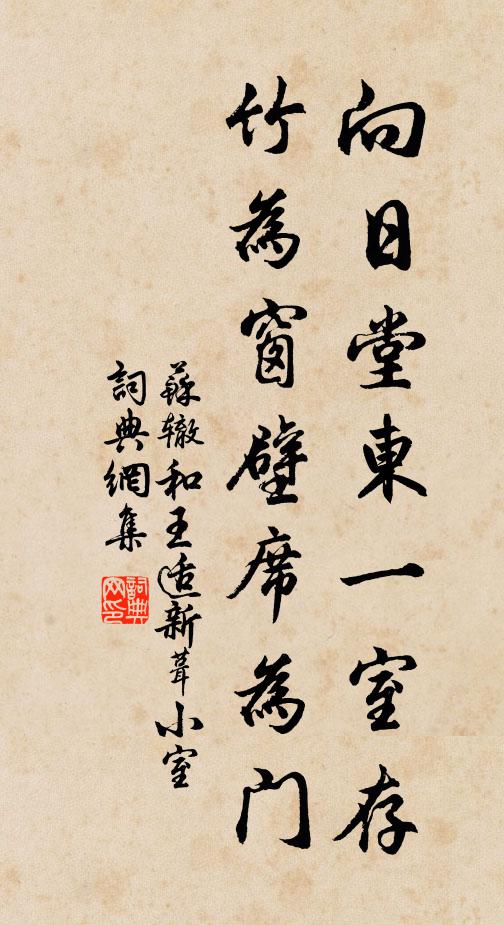 向日堂東一室存
竹為窗壁席為門
蘇轍和王适新葺小室
詞典網集
詞典網印